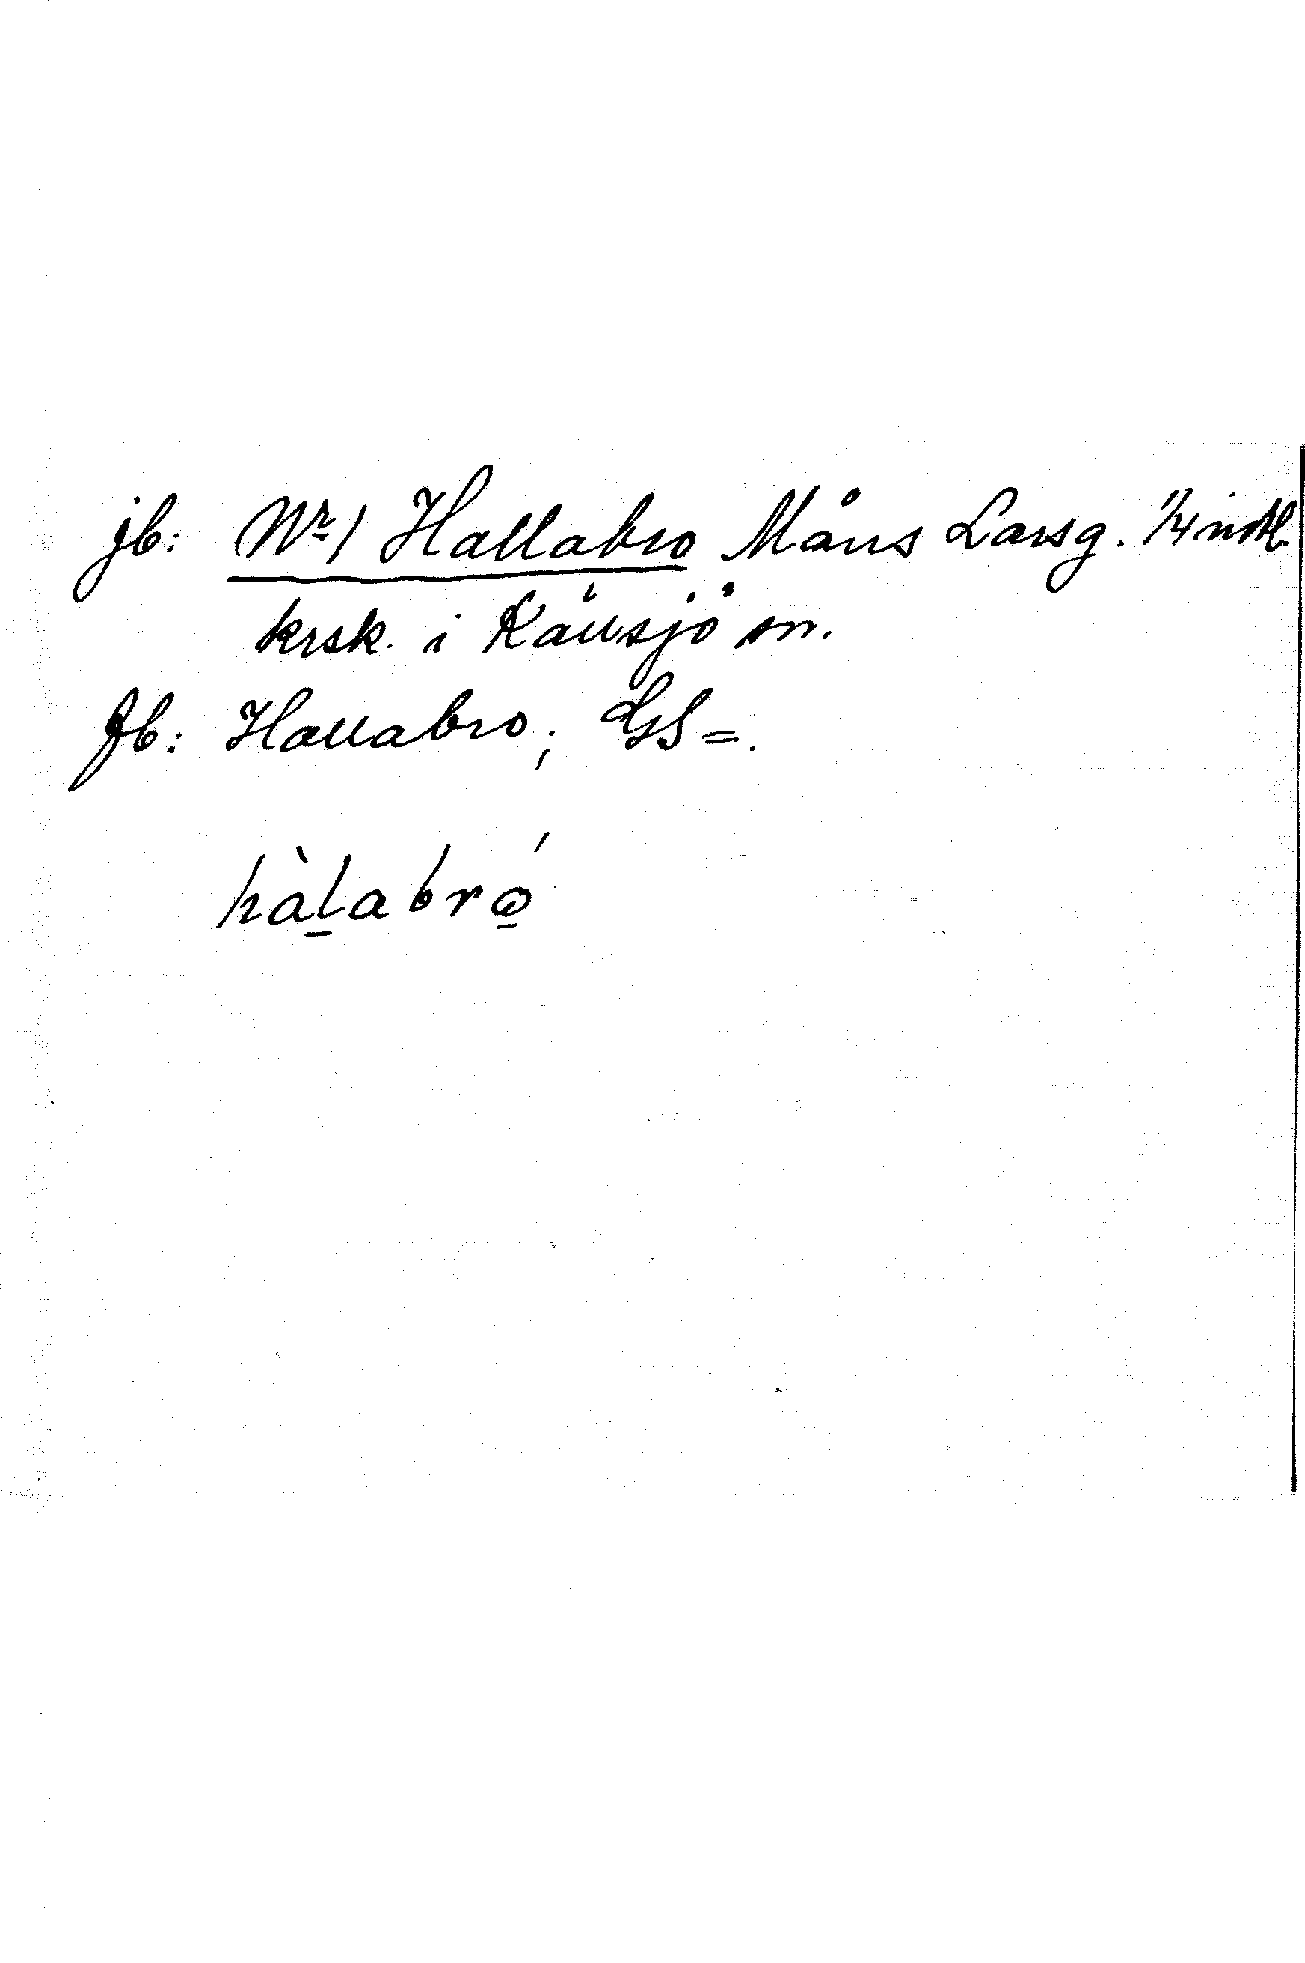 jb: Nr 1 Hallabro Måns Larsg. 1/4 mtl
krsk. i Källsjö sn.
Jb: Hallabro; GS =.
hàlabró